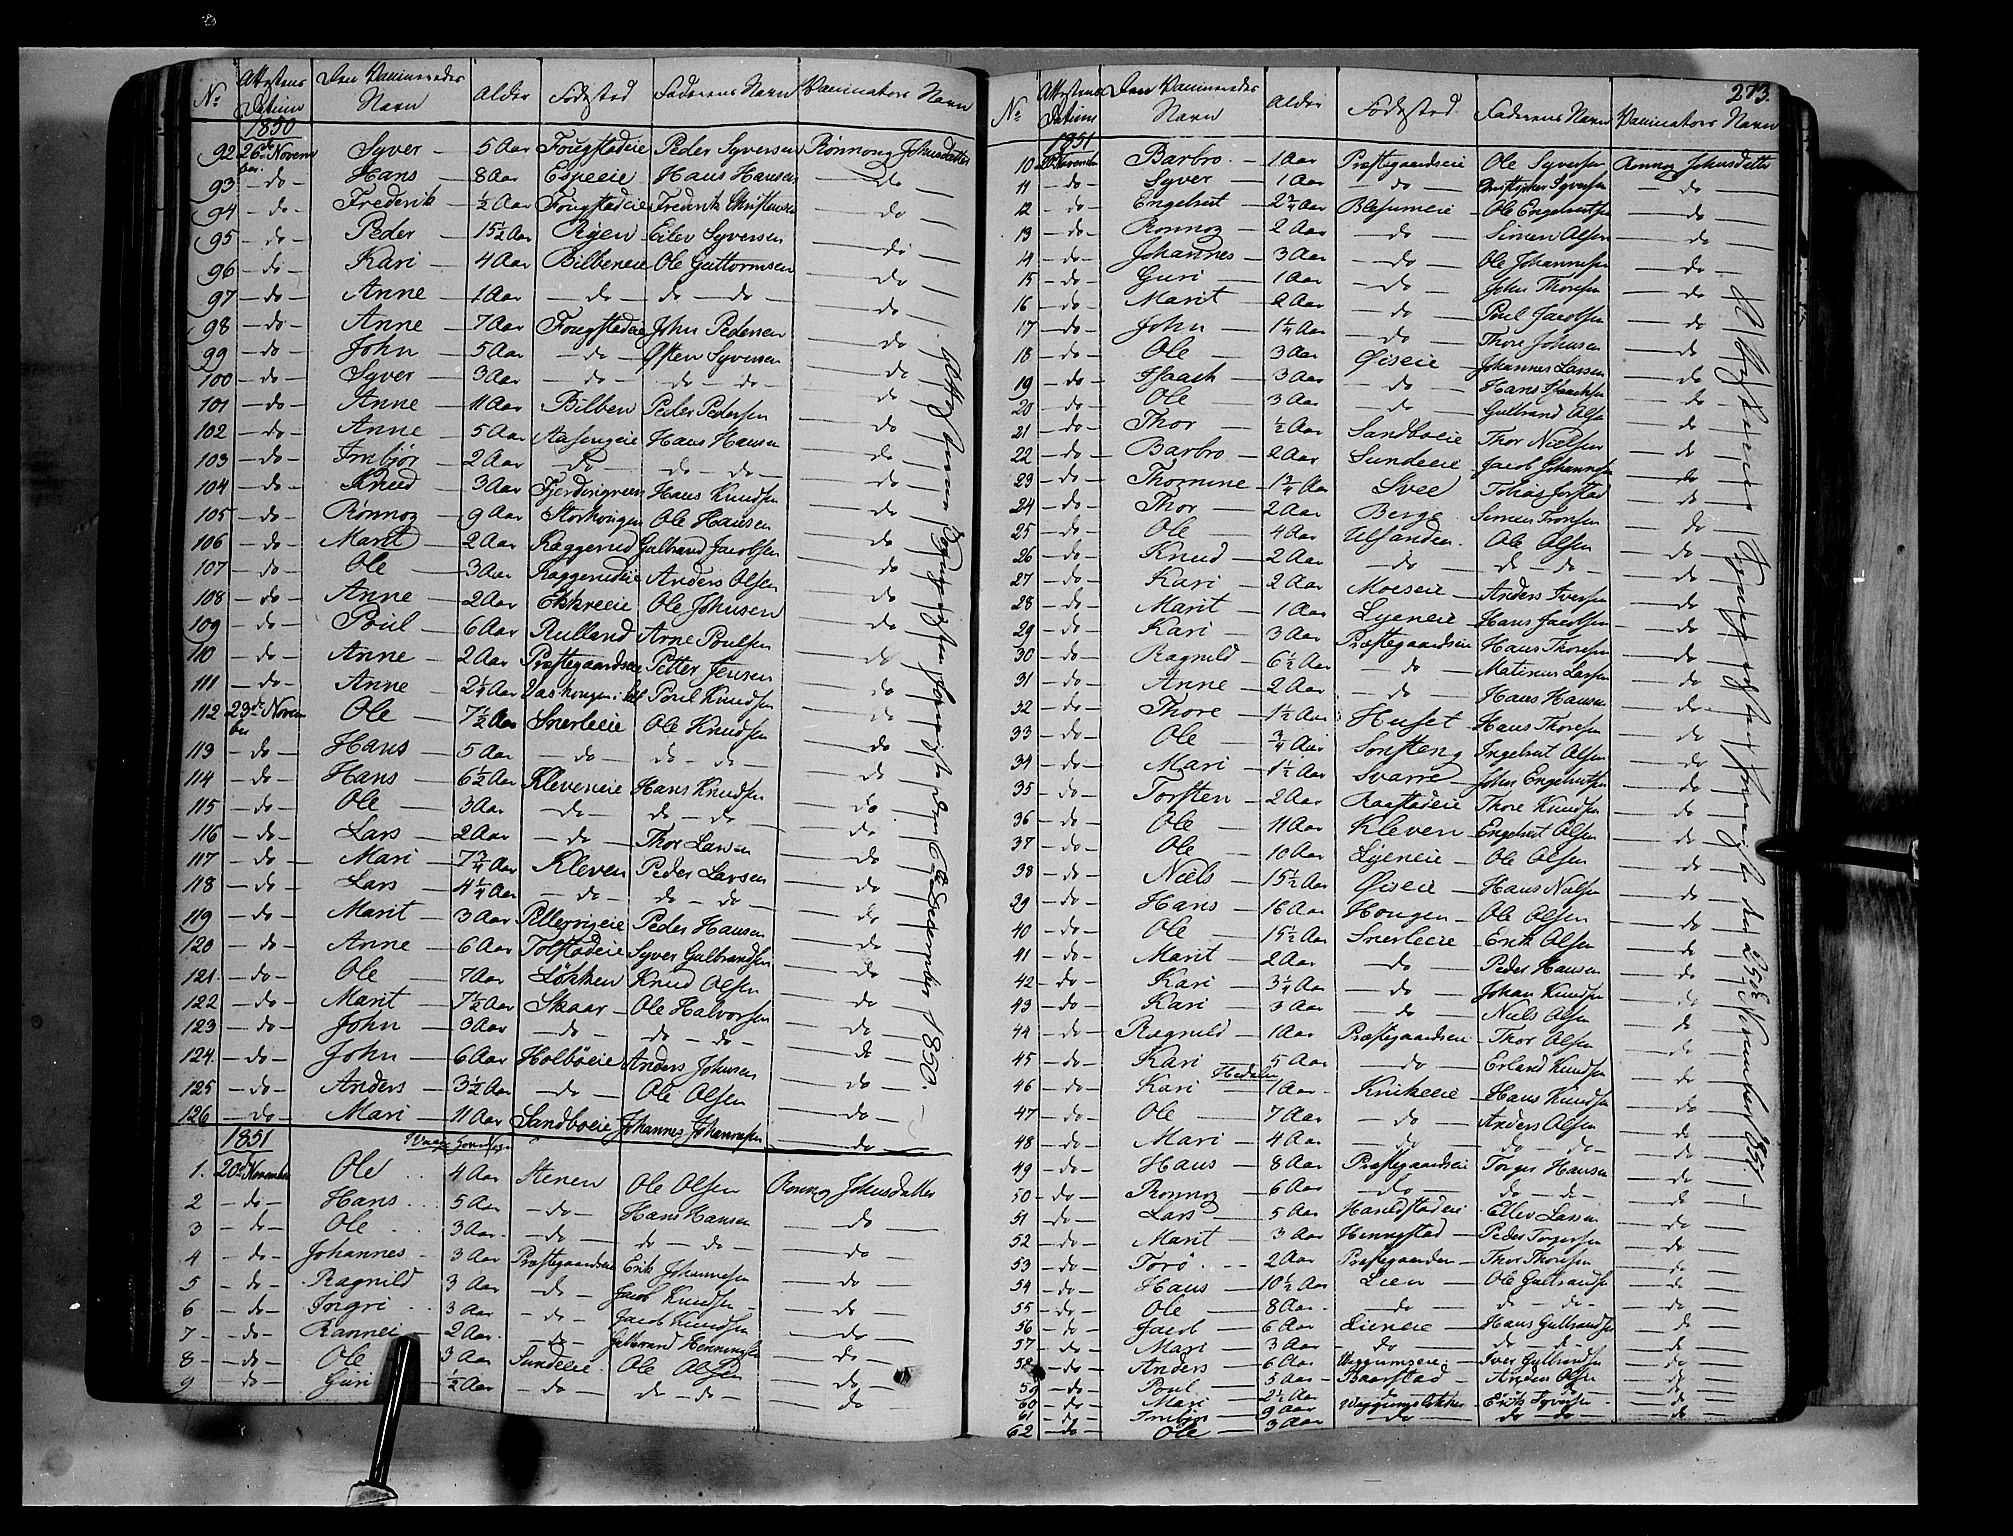 273.
No Attestens Datum Den Vaccineredes Navn Alder Fødested Faderens Navn Vaccinators Navn
1850
92 26de November Syver 5 Aar Fougstadeie Peder Syversen Rønnoug Johnsdatter
93 - do - Hans 8 Aar Espeeie Hans Hansen - do -
94 - do - Frederik ½ Aar Fougstadeie Frederik Christensen - do -
95 - do - Peder 15½ Aar Rÿen Eilev Syversen - do -
96 - do - Kari 4 Aar Bilbeneie Ole Guttormsen - do -
97 - do - Anne 1 Aar - do - do - do - - do -
98 - do - Anne 7 Aar Fougstadeie John Pedersen - do -
99 - do - John 5 Aar - do - Østen Syversen - do -
100 - do - Syver 3 Aar - do - - do - do - - do -
101 - do - Anne 11 Aar Bilben Peder Pedersen - do -
102 - do - Anne 5 Aar Aasengeie Hans Hansen - do -
103 - do - Imbjør 2 Aar - do - - do - do - - do -
104 - do - Knud 3 Aar Hans Knudsen - do -
105 - do - Rønnog 9 Aar Storhougen Ole Hansen - do -
106 - do - Marit 2 Aar Kaggerud Gulbrand Jacobsen - do -
107 - do - Ole 3 Aar Kaggerudeie Anders Olsen - do -
108 - do - Anne 2 Aar Ekkreeie Ole Johnsen - do -
109 - do - Poul 6 Aar Rulland Arne Poulsen - do -
110 - do - Anne 2 Aar Præstegaardseie Petter Jensen - do -
111 - do - Anne 2¼ Aar Poul Knudsen - do -
112 23de November Ole 7½ Aar Snerleeie Ole Knudsen - do -
113 - do - Hans 5 Aar - do - - do - do - - do -
114 - do - Hans 6½ Aar Kleveneie Hans Knudsen - do -
115 - do - Ole 3 Aar - do - - do - do - - do -
116 - do - Lars 2 Aar - do - Thor Larsen - do -
117 - do - Mari 7¾ Aar Kleven Peder Larsen - do -
118 - do - Lars 4¼ Aar - do - - do - do - - do -
119 - do - Marit 3 Aar Pillervigeie Peder Hansen - do -
120 - do - Anne 6 Aar Tolstadeie Syver Gulbrandsen - do -
121 - do - Ole 7 Aar Løkken Knud Olsen - do -
122 - do - Marit 7½ Aar Skaar Ole Halvorsen - do -
123 - do - John 3 Aar - do - - do - do - - do -
124 - do - John 6 Aar Holbøeie Anders Johnsen - do -
125 - do - Anders 3½ Aar - do - Ole Olsen - do -
126 - do - Mari 11 Aar Sandboeie Johannes Johannesen - do -
December 1850
1851
1. 20de November Ole 4 Aar Stenen Ole Olsen Rønnog Johnsdatter
2 - do - Hans 5 Aar - do - Hans Hansen - do -
3 - do - Ole 3 Aar - do - - do - do - - do -
4 - do - Johannes 3 Aar Præstegaardseie Erik Johannesen - do -
5 - do - Ragnild 3 Aar - do - Jacob Knudsen - do -
6 - do - Ingri 3 Aar - do - Jacob Knudsen - do -
7 - do - Rannei 2 Aar - do - Gulbrand Henningsen - do -
8 - do - Ole 3 Aar Sundeeie Ole Olsen - do -
9 - do - Guri ½ Aar - do - - do - do - - do -
No Attestens Datum Den Vaccineredes Navn Alder Fødested Faderens Navn Vaccinators Navn
1851
10 20de November Barbro 1 Aar Præstegaardseie Ole Syversen Rønnog Johnsdatter
11 - do - Syver 1 Aar - do - Christopher Syversen - do -
12 - do - Engebret 2¾ Aar Blessumeie Ole Engebretsen - do -
13 - do - Rønnog 2 Aar - do - Simen Olsen - do -
14 - do - Johannes 3 Aar - do - Ole Johannesen - do -
15 - do - Guri 1 Aar - do - John Thoresen - do -
16 - do - Marit 2 Aar - do - Poul Jacobsen - do -
17 - do - John 1¼ Aar - do - Thore Johnsen - do -
18 - do - Ole 3 Aar Øiseie Johannes Larsen - do -
19 - do - Isaach 3 Aar - do - Hans Isaachsen - do -
20 - do - Ole 3 Aar - do - Gulbrand Olsen - do -
21 - do - Thor ½ Aar Sandboeie Thor Nielsen - do -
22 - do - Barbro 2 Aar Sundeeie Jacob Johannesen - do -
23 - do - Thomine 1¾ Aar Svee Tobias Jorstad - do -
24 - do - Thor 2 Aar Berge Simen Tronsen - do -
25 - do - Ole 4 Aar Ulfsanden Ole Olsen - do -
26 - do - Knud 2 Aar - do - - do - do - - do -
27 - do - Kari 2 Aar Moeseie Anders Iversen - do -
28 - do - Marit 1 Aar Lyeneie Hans Jacobsen - do -
29 - do - Kari 3 Aar Præstegaardseie Hans Thoresen - do -
30 - do - Ragnild 6½ Aar - do - Matinus Larsen - do -
31 - do - Anne 2 Aar - do - Hans Hansen - do -
32 - do - Thore 1½ Aar Huset Hans Thoresen - do -
33 - do - Ole ¾ Aar Sonsteng Ingebret Olsen - do -
34 - do - Mari 1½ Aar Svarre John Engebretsen - do -
35 - do - Torsten 2 Aar Raastadeie Thore Knudsen - do -
36 - do - Ole 11 Aar Kleven Engebret Olsen - do -
37 - do - Ole 10 Aar Lyeneie Ole Olsen - do -
38 - do - Niels 15½ Aar Øiseie Hans Nielsen - do -
39 - do - Hans 16 Aar Hougen Ole Olsen - do -
40 - do - Ole 15½ Aar Snerleeie Erik Olsen - do -
41 - do - Marit 2 Aar - do - Peder Hansen - do -
42 - do - Kari 3¼ Aar - do - Johan Knudsen - do -
43 - do - Kari 3 Aar - do - Niels Olsen - do -
44 - do - Ragnild 1 Aar Præstegaardseie Thor Olsen - do -
45 - do - Kari 5 Aar - do - Erland Knudsen - do -
Hedalen
46 - do - Kari 1 Aar Krukeeie Hans Knudsen - do -
47 - do - Ole 7 Aar - do - Anders Olsen - do -
48 - do - Mari 4 Aar - do - - do - do - - do -
49 - do - Hans 8 Aar Præstegaardseie Torger Hansen - do -
50 - do - Rønnog 6 Aar - do - - do - do - - do -
51 - do - Lars 5 Aar Ellev Larsen - do -
52 - do - Marit 3 Aar Henningstad Peder Torgersen - do -
53 - do - Torø 2 Aar Præstegaarden Thor Thoresen - do -
54 - do - Hans 10½ Aar Lien Ole Gulbrandsen - do -
55 - do - Ole 8 Aar - do - - do - do - - do -
56 - do - Jacob 6 Aar Lieneie Hans Gulbrandsen - do -
57 - do - Mari 3 Aar - do - - do - do - - do -
58 - do - Anders 6 Aar Waggumseie Iver Gulbrandsen - do -
59 - do - Poul 5 Aar Baarstad Anders Olsen - do -
60 - do - Mari 2½ Aar - do - - do - - do -
61 - do - Imbjør 9 Aar Waggumsløkken Erik Syversen - do -
62 - do - Ole 3 Aar - do - - do - do - - do -
den 25de November 1851